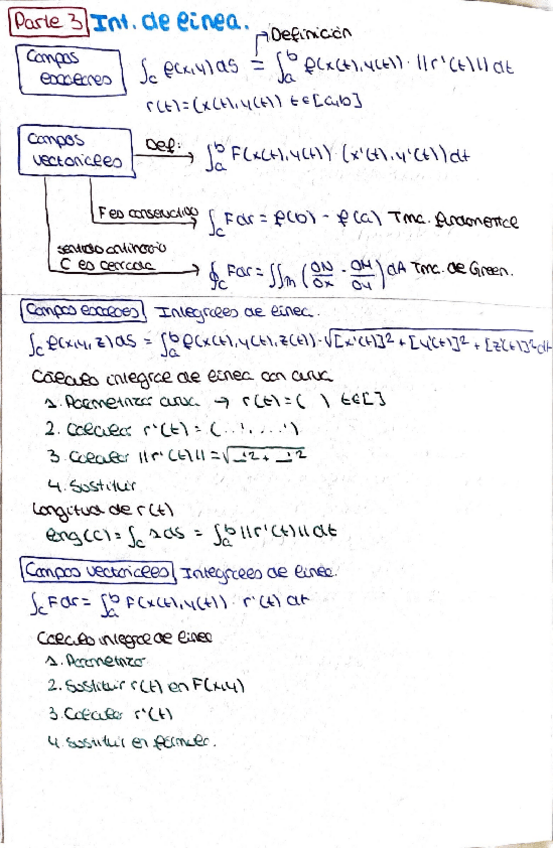 Parte 3 Int. de línea.
Definición
Campos escalares ∫_C f(x,y) ds = ∫_a^b f(x(t),y(t)) · ||r'(t)|| dt
r(t)=(x(t),y(t)) t∈[a,b]
Campos vectoriales Def: ∫_a^b F(x(t),y(t)) · (x'(t),y'(t)) dt
F es conservativo ∫_C F dr = f(b) - f(a) Tma. fundamental
sentido antihorario
C es cerrada ∮_C F dr = ∬_M (∂N/∂x - ∂M/∂y) dA Tma. de Green.
Campos escalares Integrales de línea.
∫_C f(x,y,z) ds = ∫_a^b f(x(t),y(t),z(t)) · √([x'(t)]² + [y'(t)]² + [z'(t)]²) dt
Cálculo integral de línea con curva
1. Parametrizar curva → r(t)=( ) t∈[ ]
2. Calcular r'(t) = (...', ...')
3. Calcular ||r'(t)|| = √(_² + _²)
4. Sustituir
Longitud de r(t)
long(C) = ∫_C 1 ds = ∫_a^b ||r'(t)|| dt
Campos vectoriales Integrales de línea.
∫_C F dr = ∫_a^b F(x(t),y(t)) · r'(t) dt
Cálculo integral de línea
1. Parametrizo
2. Sustituir r(t) en F(x,y)
3. Calcular r'(t)
4. Sustituir en fórmula.